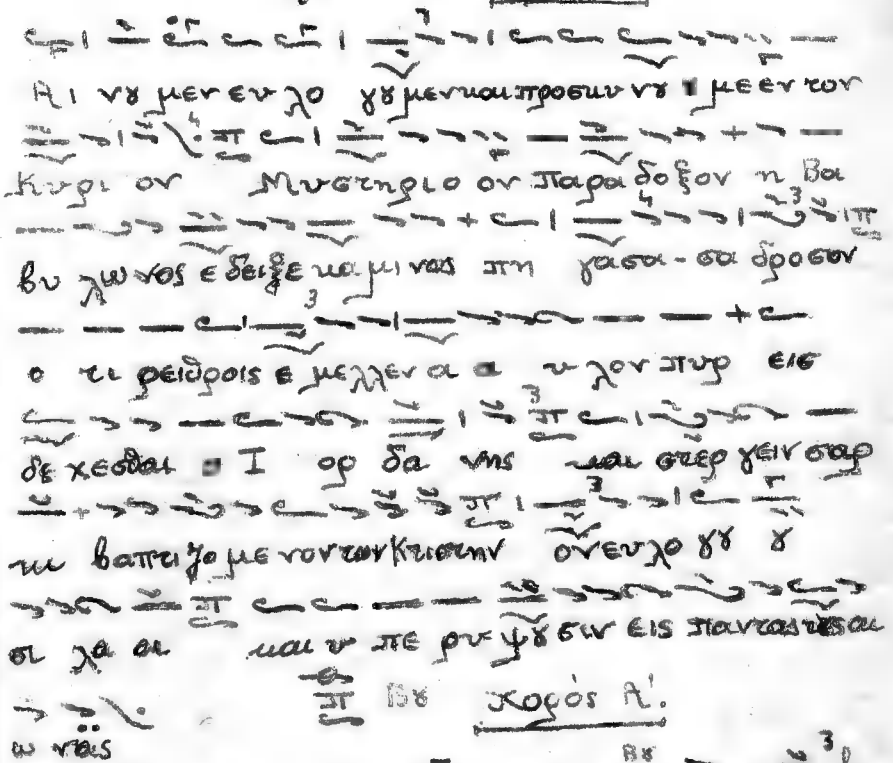 Αι νȣ μεν ευ λο γȣ μεν και προσκυ νȣ με εν τον
Κυρι ον Μυστηριο ον παρα δοξον η Βα
βυ λωνος ε δειξε κα μι νος πη γασα-σα δροσον
ο τι ρειθροις ε μελλεν α α υ λον πυρ εισ
δε χεσθαι Ι ορ δα νης και στερ γειν σαρ
κι βαπτιζομε νον τον Κτιστην ον ευλο γȣ ȣ
σι λα οι και υ πε ρυ ψȣ σιν εις παντας τȣς αι
ω νας Βȣ Χορός Α'.
Βȣ